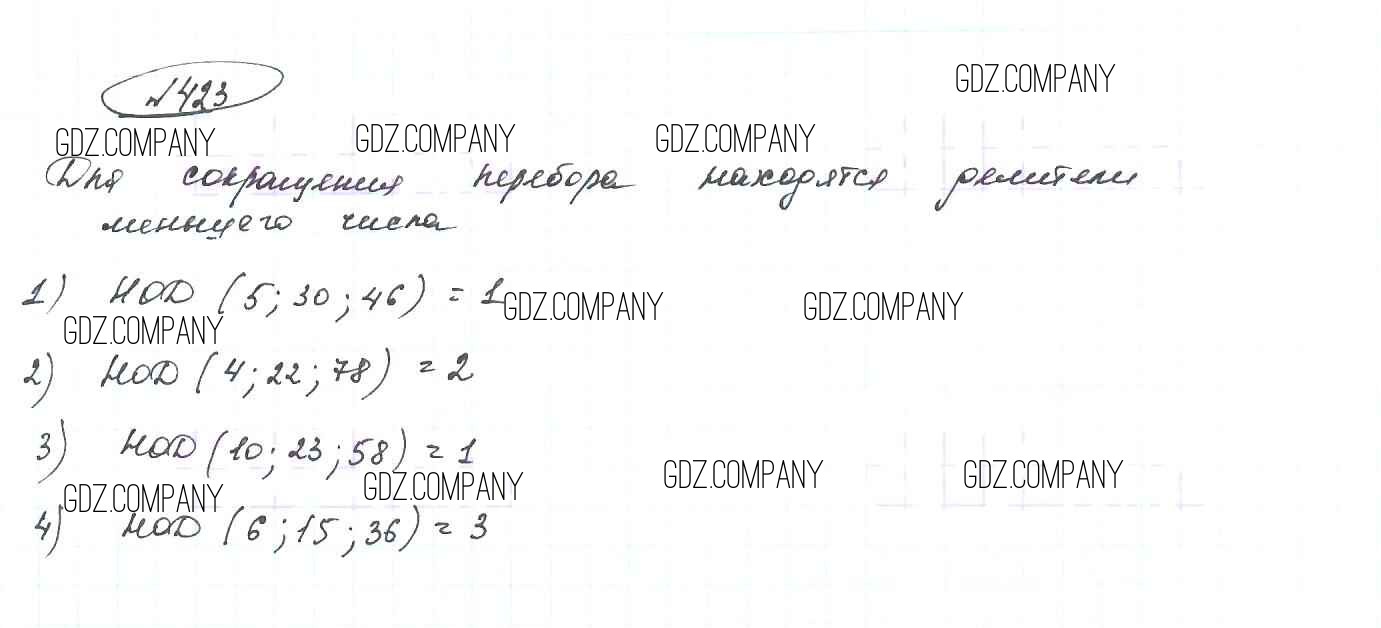 №423
GDZ.COMPANY
GDZ.COMPANY GDZ.COMPANY GDZ.COMPANY
Для сокращения перебора находятся делители
меньшего числа
1) НОД (5; 30; 46) = 1
GDZ.COMPANY GDZ.COMPANY
GDZ.COMPANY
2) НОД (4; 22; 78) = 2
3) НОД (10; 23; 58) = 1
GDZ.COMPANY GDZ.COMPANY GDZ.COMPANY
GDZ.COMPANY
4) НОД (6; 15; 36) = 3